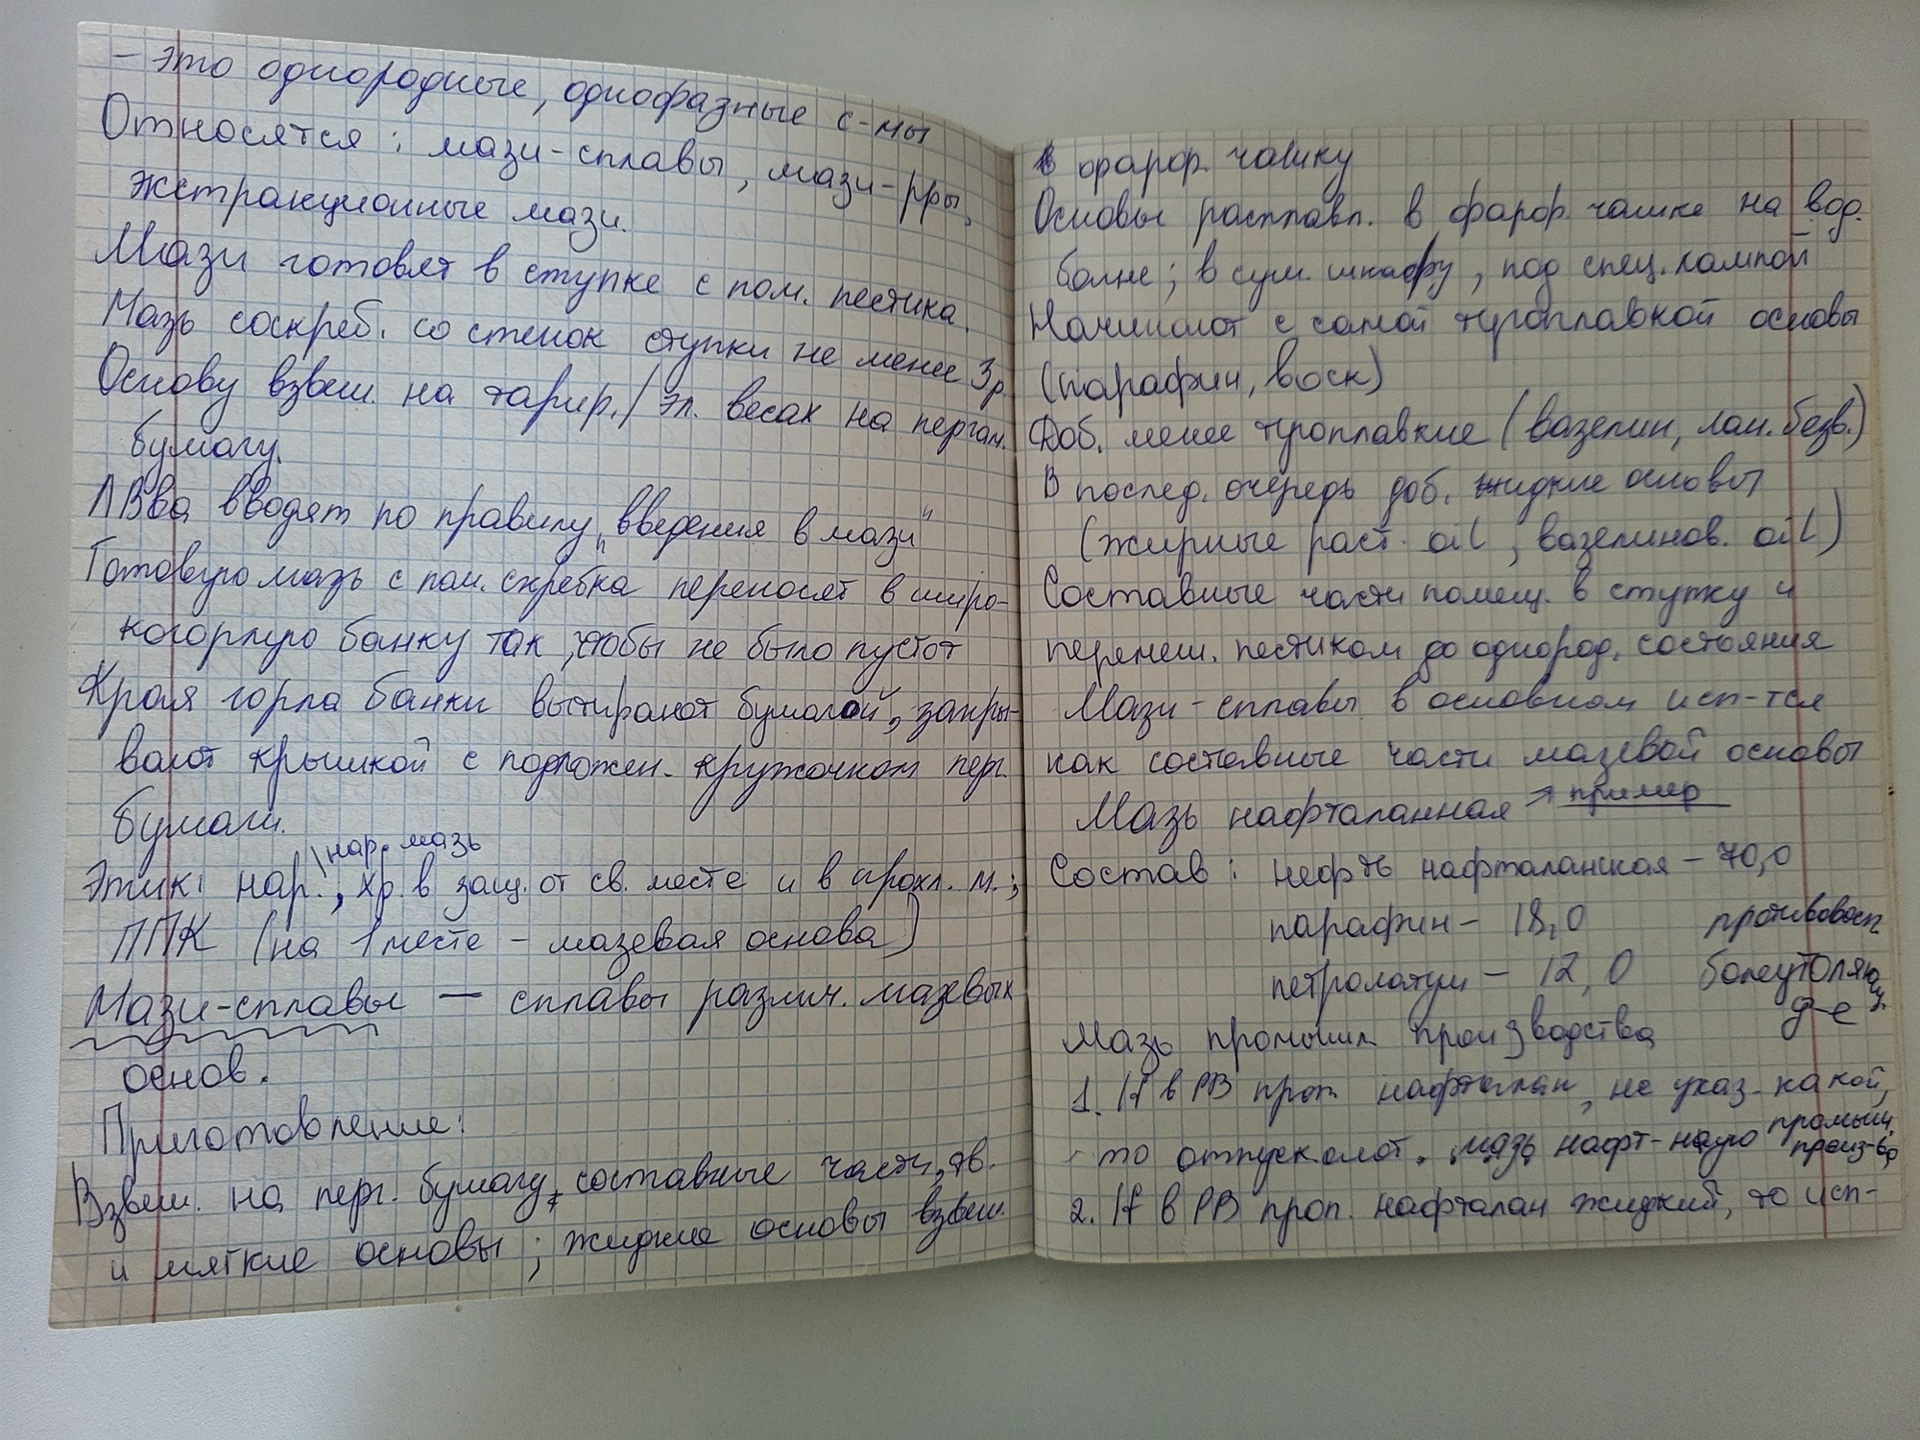 – это однородные, однофазные с-мы
Относятся: мази-сплавы, мази-рры,
экстракционные мази.
Мази готовят в ступке с пом. пестика.
Мазь соскреб. со стенок ступки не менее 3 р.
Основу взвеш. на тарир. / эл. весах на пергам.
бумагу.
ЛВва вводят по правилу „введения в мази"
Готовую мазь с пом. скребка переносят в широ-
когорлую банку так, чтобы не было пустот
Края горла банки вытирают бумагой, закры-
вают крышкой с подложен. кружочком перг.
бумаги.
нар. мазь
Этик: нар., хр. в защ. от св. месте и в прохл. м.;
ППК (на 1 месте – мазевая основа)
Мази-сплавы — сплавы различ. мазевых
основ.
Приготовление:
Взвеш. на перг. бумагу составные части, тв.
и мягкие основы; жидкие основы взвеш.
в фарфор. чашку
Основы расплавл. в фарфор. чашке на вод.
бане; в суш. шкафу, под спец. лампой
Начинают с самой тугоплавкой основы
(парафин, воск)
Доб. менее тугоплавкие (вазелин, лан. безв.)
В послед. очередь доб. жидкие основы
(жирные раст. oil, вазелинов. oil)
Составные части помещ. в ступку и
перемеш. пестиком до однород. состояния
Мази-сплавы в основном исп-тся
как составные части мазевой основы
Мазь нафталанная → пример
Состав: нефть нафталанская – 70,0
парафин – 18,0 противовосп
петролатум – 12,0 болеутоляющ.
д-е
Мазь промышл. производства
1. If в РВ проп. нафталан, не указ. какой,
то отпускают. мазь нафт-нную промыш.
произ-ва
2. If в РВ проп. нафталан жидкий, то исп-